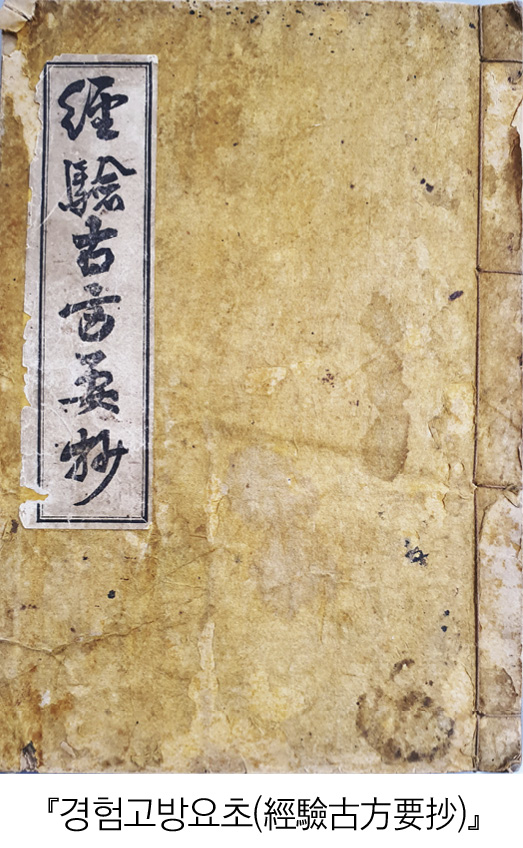 經驗古方要抄
『경험고방요초(經驗古方要抄)』